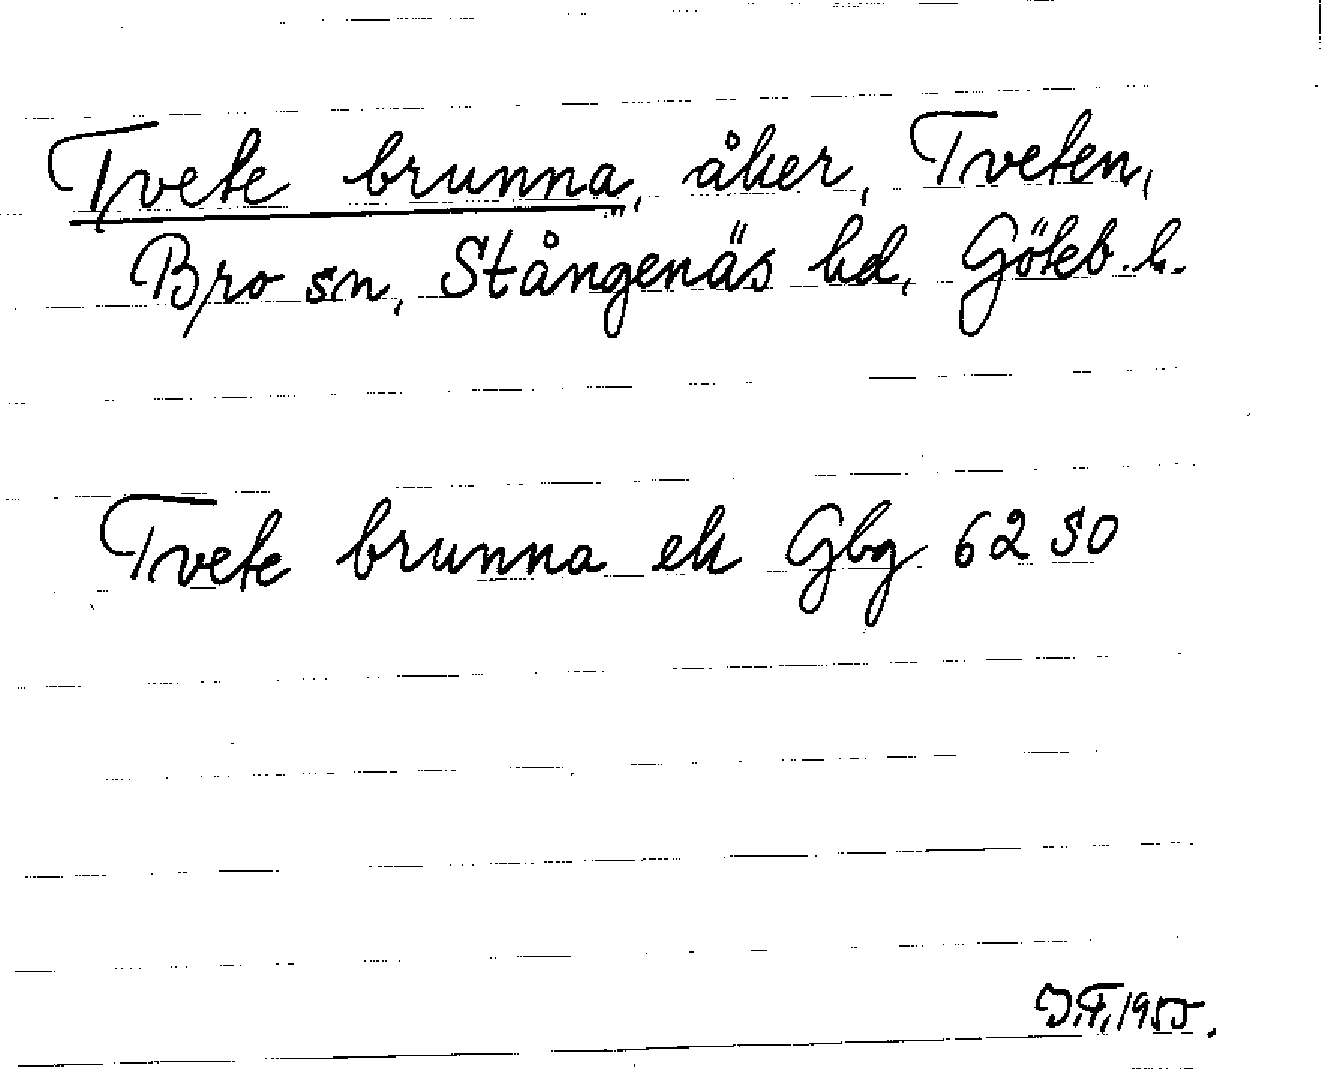 Tvete brunna, åker, Tveten,
Bro sn, Stångenäs hd, Göteb. l.
Tvete brunna ek Gbg 62 50
J.F. 1955.